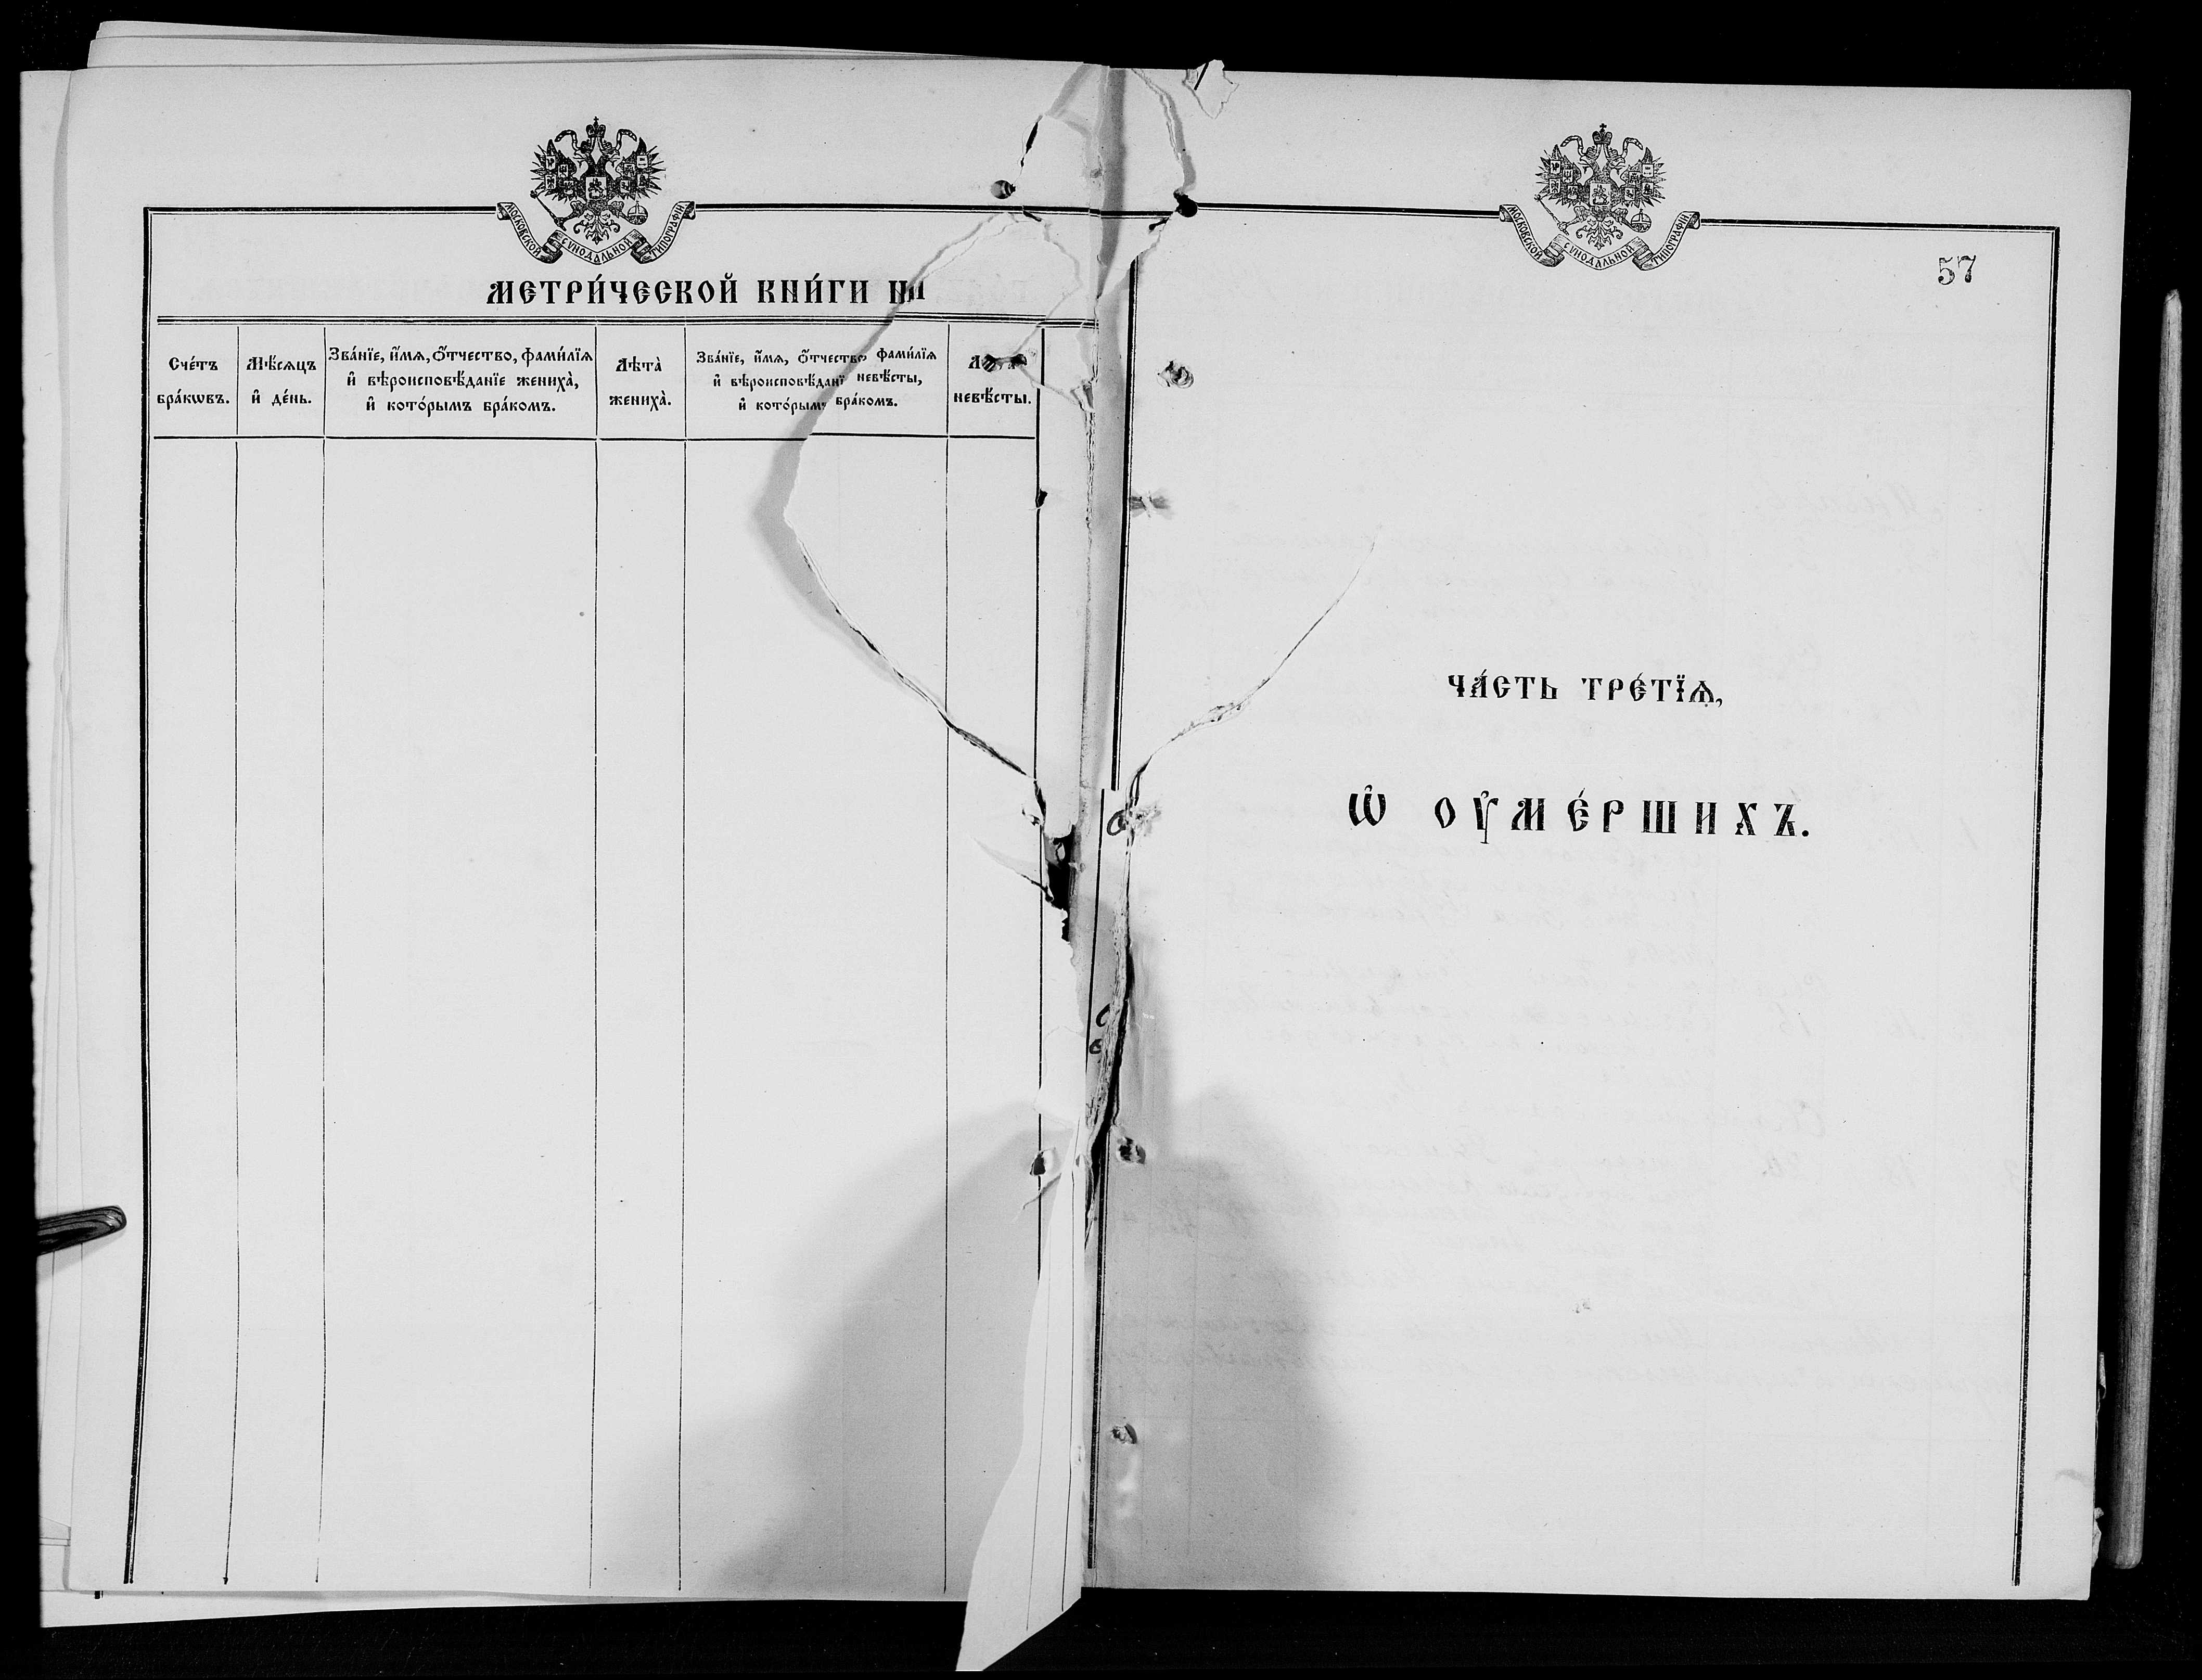 МОСКОВСКОЙ СѴНОДАЛЬНОЙ ТИПОГРАФІИ
МЕТРИ́ЧЕСКОЙ КНИ́ГИ НА
Сче́тъ
бра́кѡвъ.
Мѣ́сѧцъ
и҆ де́нь.
Зва́нїе, и҆́мѧ, ѻ҆́тчество, фами́лїѧ
и҆ вѣроисповѣ́данїе жениха̀,
и҆ кото́рымъ бра́комъ.
Лѣта̀
жениха̀.
Зва́нїе, и҆́мѧ, ѻ҆́тчество фами́лїѧ
и҆ вѣроисповѣ́данї невѣ́сты,
и҆ кото́рымъ бра́комъ.
невѣ́сты.
МОСКОВСКОЙ СѴНОДАЛЬНОЙ ТИПОГРАФІИ
57
ЧА́СТЬ ТРЕ́ТЇѦ,
Ѡ҆ ОУ҆МЕ́РШИХЪ.